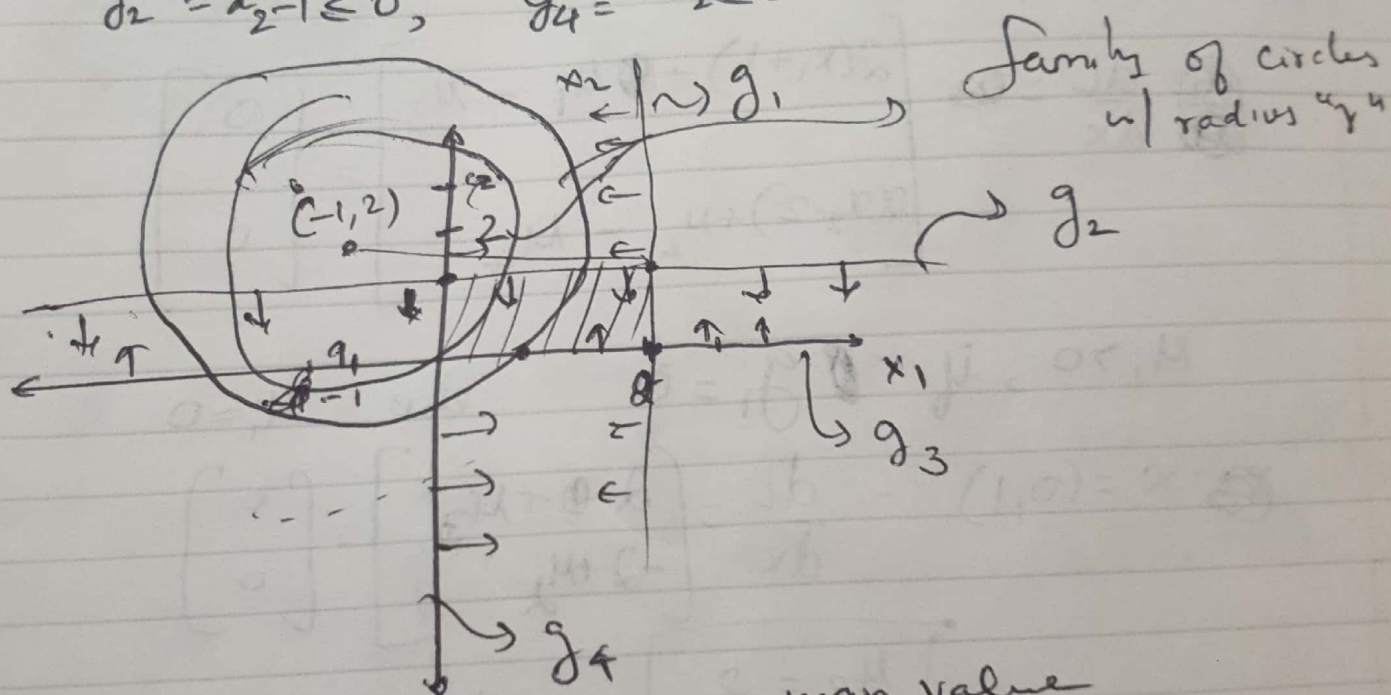 g2 = x2-1 ≤ 0, g4 =
x2
g1
family of circles
w/ radius "r"
(-1,2)
2
g2
x1
-1
g3
g4
max value